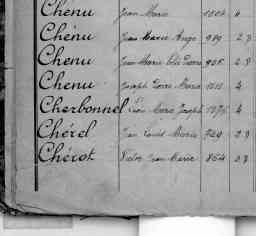 Chenu Jean Marie 4
Chenu Jean Marie Ange 919 2 3
Chenu Jean Marie Pierre 2 3
Chenu Joseph Pierre Marie 4
Cherbonnel Marie Joseph 1076 4
Chérel Jean Louis Marie 720 2 3
Chérot Victor Jean Marie 864 2 3